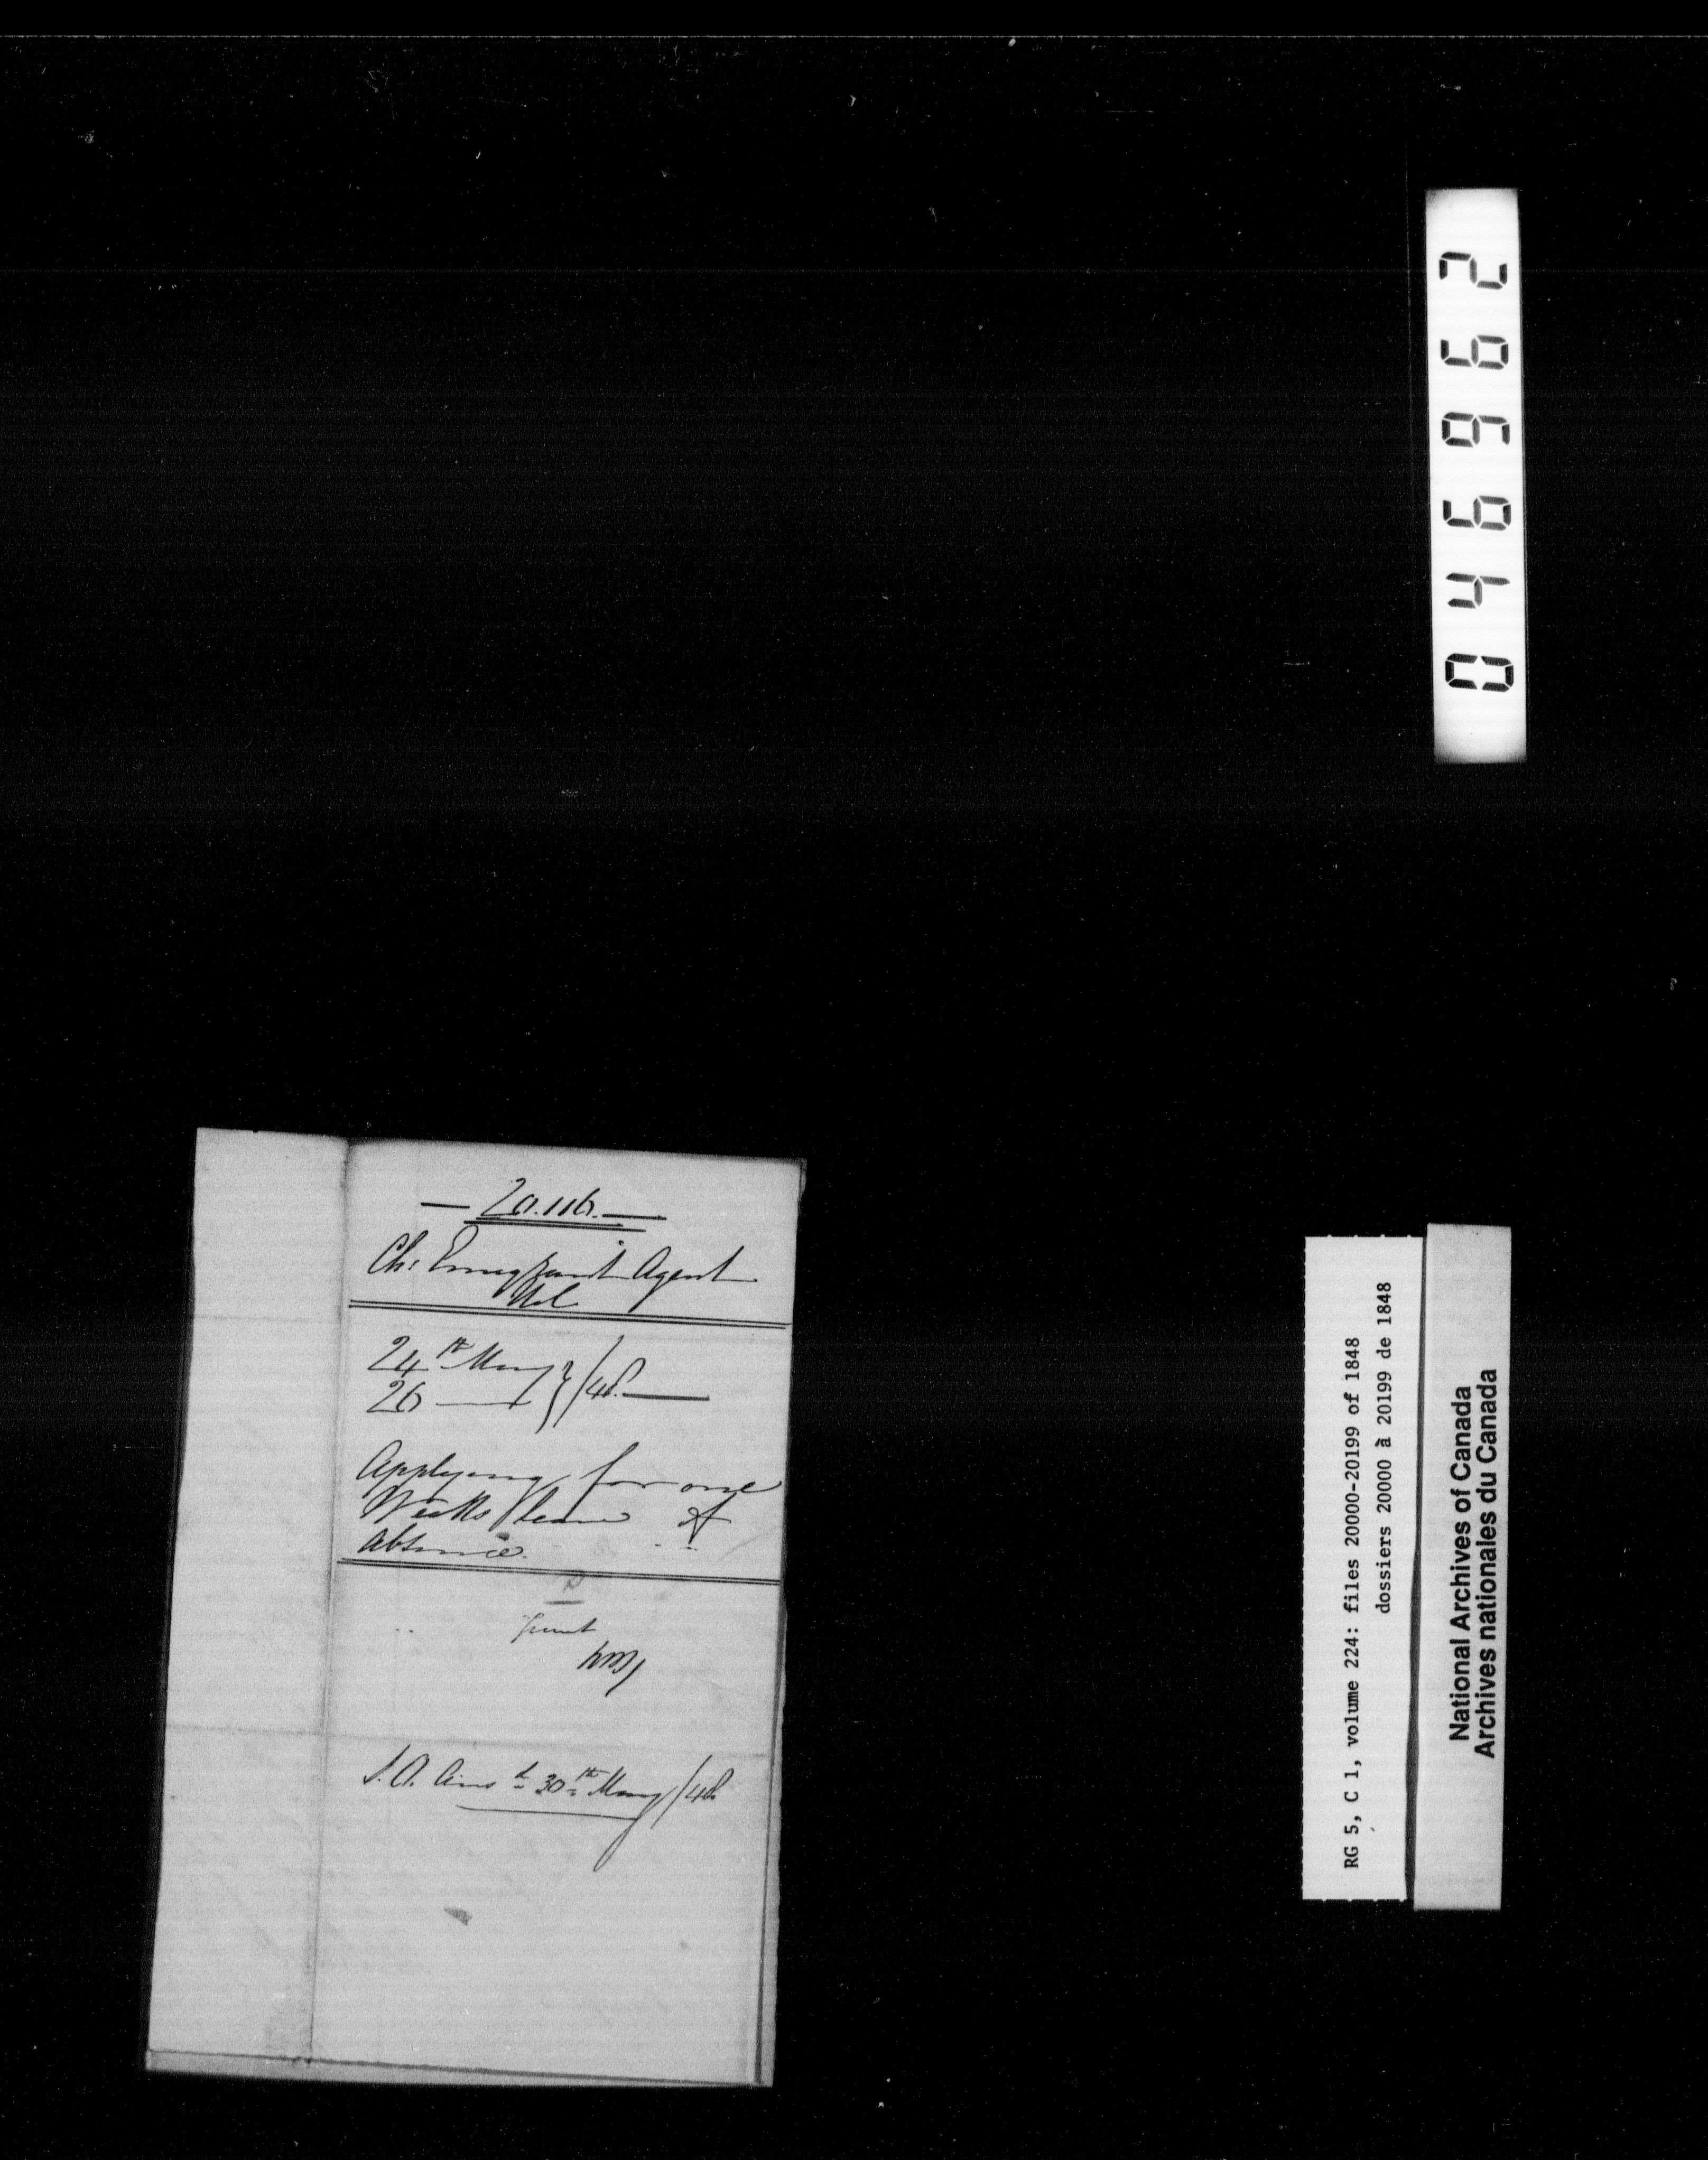 — 20.116. —
Ch: Emigrant Agent
24th May } /48 —
26 —
Applying for one
Weeks leave of
absence.
Grant
30th May /48
046962
RG 5, C 1, volume 224: files 20000-20199 of 1848
dossiers 20000 à 20199 de 1848
National Archives of Canada
Archives nationales du Canada